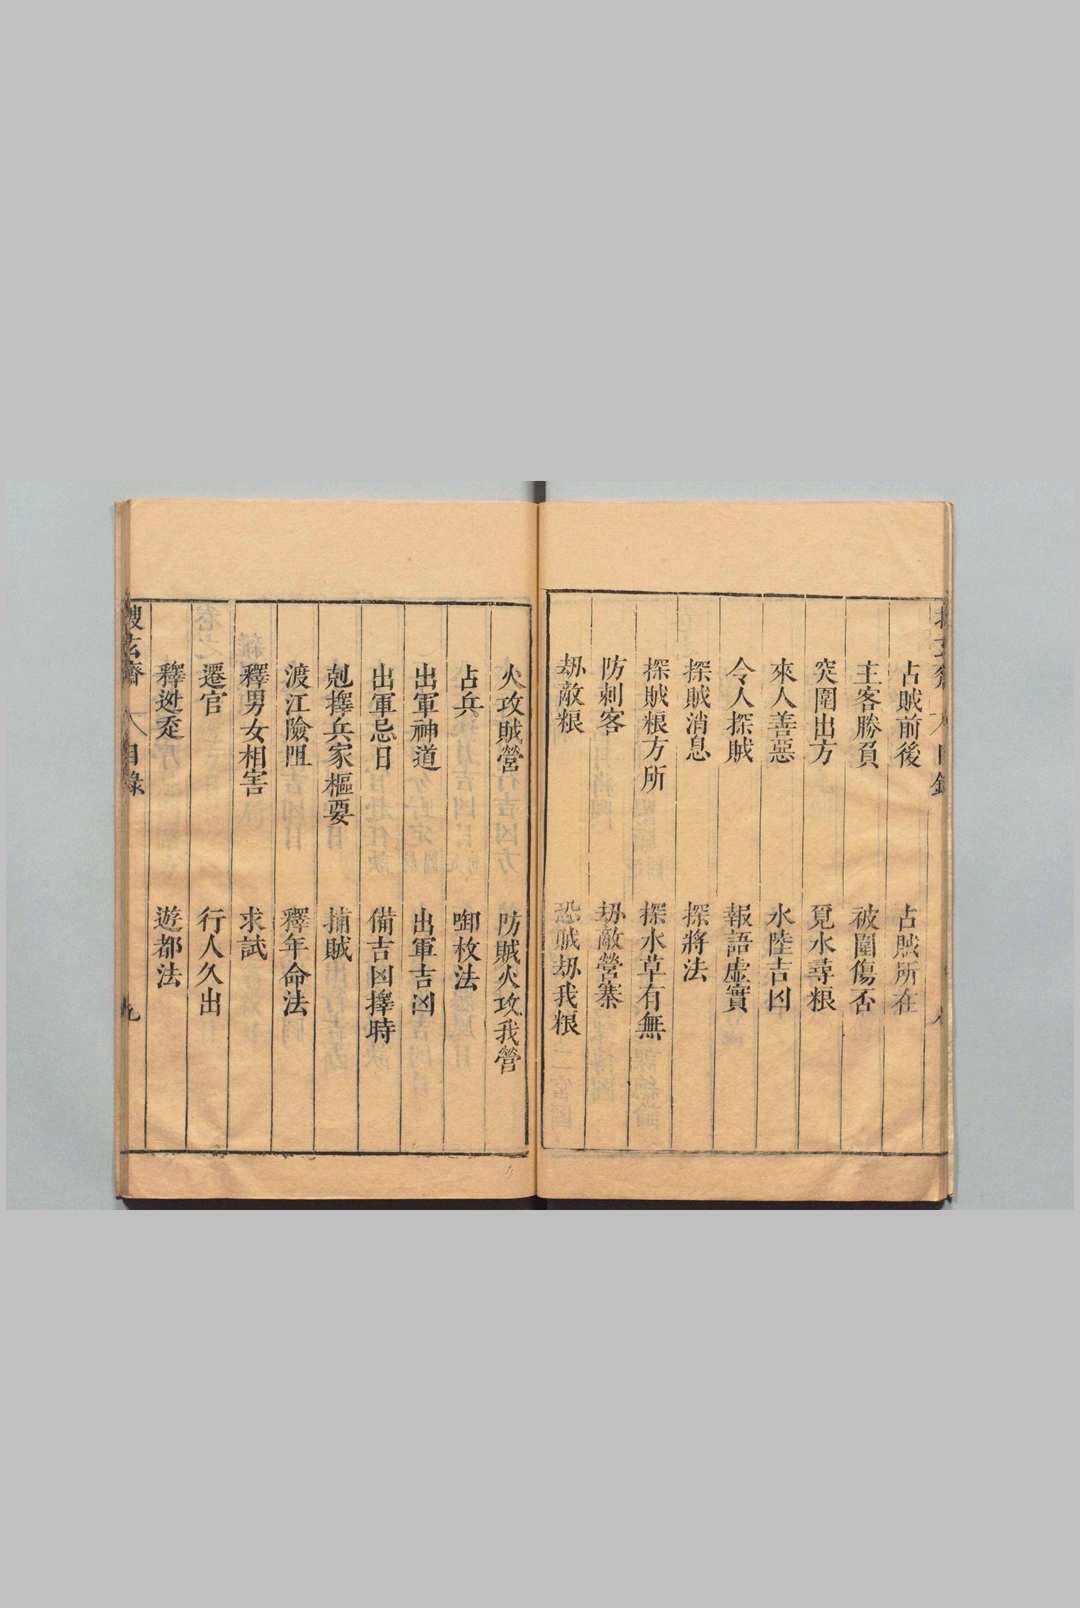 占賊前後　占賊所在
主客勝負　被圍傷否
突圍出方　覓水尋粮
來人善惡　水陸吉凶
令人探賊　報語虛實
探賊消息　探將法
探賊粮方所　探水草有無
防刺客　刼敵營寨
刼敵粮　恐賊刼我粮
火攻賊營　防賊火攻我營
占兵　啣枚法
出軍神道　出軍吉凶
出軍忌日　備吉凶擇時
剋擇兵家樞要　捕賊
渡江險阻　釋年命法
釋男女相害　求試
遷官　行人久出
釋逃　遊都法
目錄　九